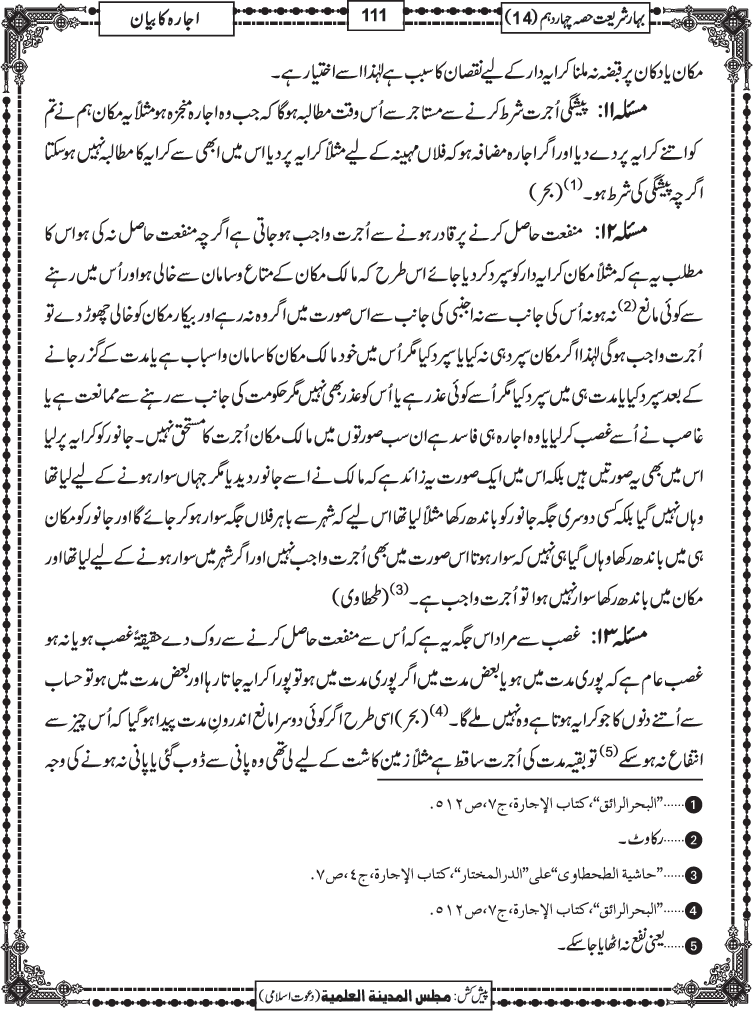 بہار شریعت حصہ چہاردہم (14)
111
اجارہ کا بیان
مکان یا دکان پر قبضہ نہ ملنا کرایہ دار کے لیے نقصان کا سبب ہے لہٰذا اسے اختیار ہے۔
مسئلہ ۱۱: پیشگی اُجرت شرط کرنے سے مستاجر سے اُس وقت مطالبہ ہوگا کہ جب وہ اجارہ منجزہ ہو مثلاً یہ مکان ہم نے تم
کو اتنے کرایہ پر دے دیا اور اگر اجارہ مضافہ ہو کہ فلاں مہینہ کے لیے مثلاً کرایہ پر دیا اس میں ابھی سے کرایہ کا مطالبہ نہیں ہوسکتا
اگرچہ پیشگی کی شرط ہو۔(1) (بحر)
مسئلہ ۱۲: منفعت حاصل کرنے پر قادر ہونے سے اُجرت واجب ہوجاتی ہے اگرچہ منفعت حاصل نہ کی ہو اس کا
مطلب یہ ہے کہ مثلاً مکان کرایہ دار کو سپرد کردیا جائے اس طرح کہ مالک مکان کے متاع وسامان سے خالی ہو اور اُس میں رہنے
سے کوئی مانع(2) نہ ہو نہ اُس کی جانب سے نہ اجنبی کی جانب سے اس صورت میں اگر وہ نہ رہے اور بیکار مکان کو خالی چھوڑ دے تو
اُجرت واجب ہوگی لہٰذا اگر مکان سپرد ہی نہ کیا یا سپرد کیا مگر اُس میں خود مالک مکان کا سامان و اسباب ہے یا مدت کے گزر جانے
کے بعد سپرد کیا یا مدت ہی میں سپرد کیا مگر اُسے کوئی عذر ہے یا اُس کو عذر بھی نہیں مگر حکومت کی جانب سے رہنے سے ممانعت ہے یا
غاصب نے اُسے غصب کرلیا یا وہ اجارہ ہی فاسد ہے ان سب صورتوں میں مالک مکان اُجرت کا مستحق نہیں۔ جانور کو کرایہ پر لیا
اس میں بھی یہ صورتیں ہیں بلکہ اس میں ایک صورت یہ زائد ہے کہ مالک نے اسے جانور دیدیا مگر جہاں سوار ہونے کے لیے لیا تھا
وہاں نہیں گیا بلکہ کسی دوسری جگہ جانور کو باندھ رکھا مثلاً لیا تھا اس لیے کہ شہر سے باہر فلاں جگہ سوار ہوکر جائے گا اور جانور کو مکان
ہی میں باندھ رکھا وہاں گیا ہی نہیں کہ سوار ہوتا اس صورت میں بھی اُجرت واجب نہیں اور اگر شہر میں سوار ہونے کے لیے لیا تھا اور
مکان میں باندھ رکھا سوار نہیں ہوا تو اُجرت واجب ہے۔(3) (طحطاوی)
مسئلہ ۱۳: غصب سے مراد اس جگہ یہ ہے کہ اُس سے منفعت حاصل کرنے سے روک دے حقیقۃً غصب ہو یا نہ ہو
غصب عام ہے کہ پوری مدت میں ہو یا بعض مدت میں اگر پوری مدت میں ہو تو پورا کرایہ جاتا رہا اور بعض مدت میں ہو تو حساب
سے اُتنے دنوں کا جو کرایہ ہوتا ہے وہ نہیں ملے گا۔(4) (بحر) اسی طرح اگر کوئی دوسرا مانع اندرونِ مدت پیدا ہوگیا کہ اُس چیز سے
انتفاع نہ ہوسکے(5) تو بقیہ مدت کی اُجرت ساقط ہے مثلاً زمین کاشت کے لیے لی تھی وہ پانی سے ڈوب گئی یا پانی نہ ہونے کی وجہ
1......"البحر الرائق"، کتاب الإجارة، ج٧، ص٥١٢.
2......رکاوٹ۔
3......"حاشية الطحطاوی" علی "الدر المختار"، کتاب الإجارة، ج٤، ص٧.
4......"البحر الرائق"، کتاب الإجارة، ج٧، ص٥١٢.
5......یعنی نفع نہ اٹھایا جا سکے۔
پیش کش: مجلس المدينة العلمية (دعوت اسلامی)